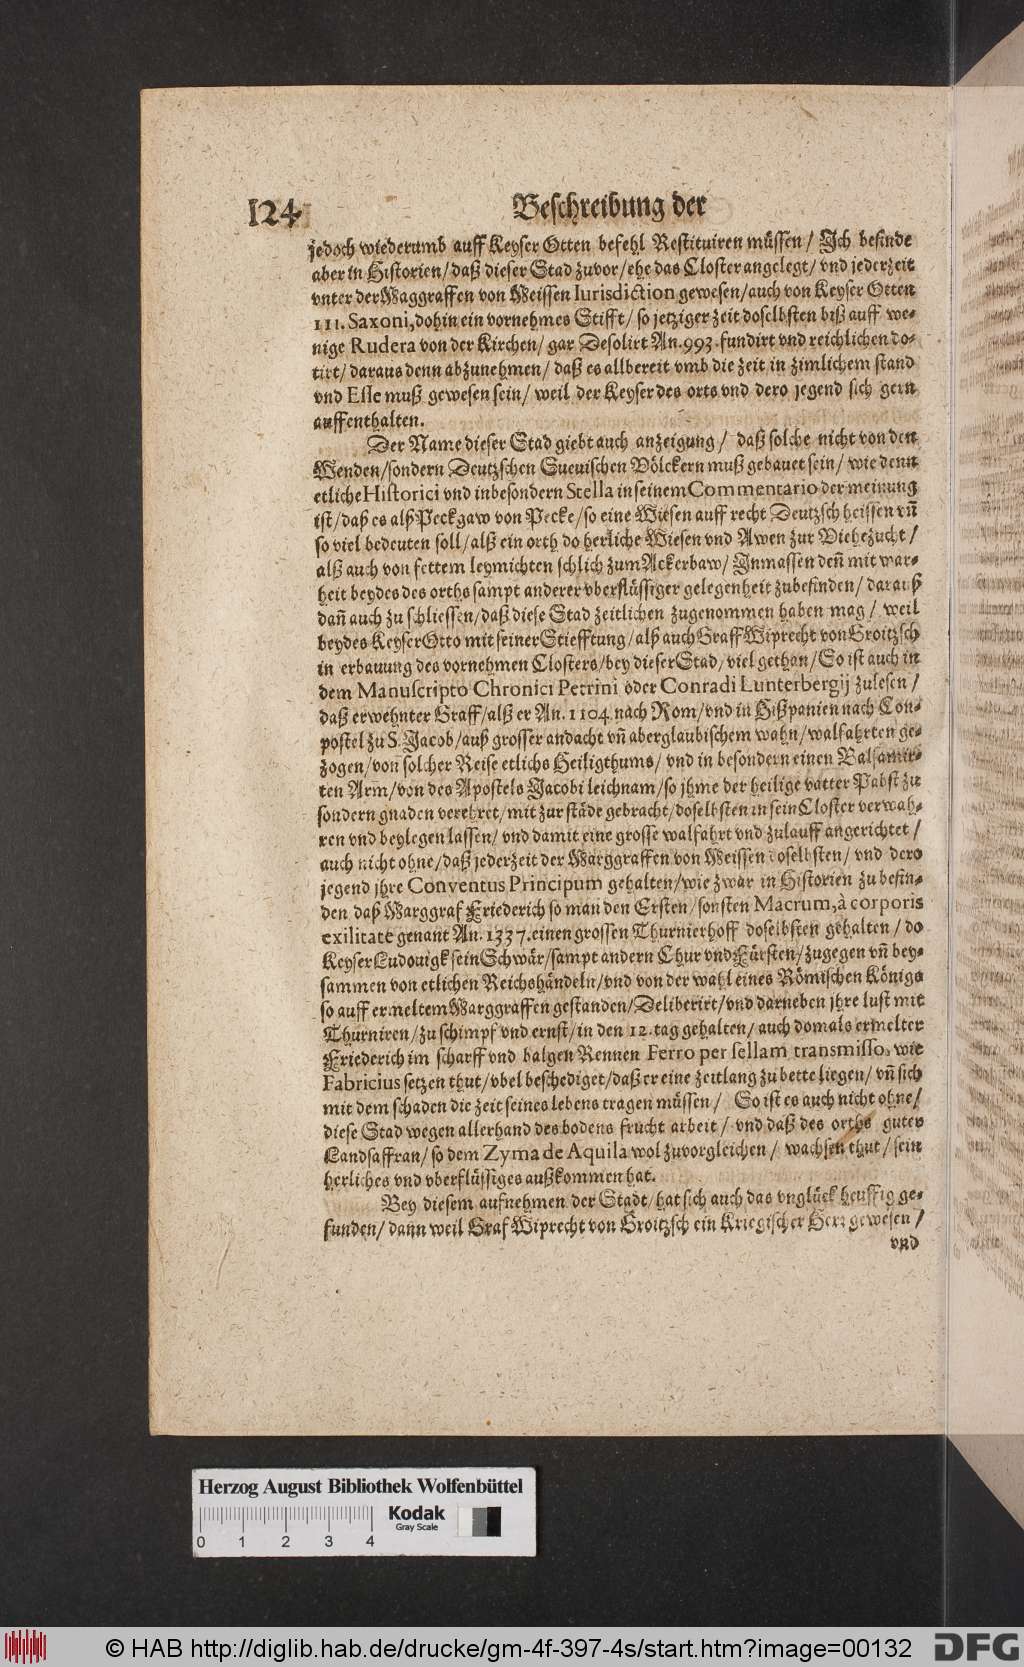 124
Beschreibung der
jedoch wiederumb auff Keyser Otten befehl Restituiren müssen / Ich befinde
aber in Historien / daß dieser Stad zuvor / ehe das Closter angelegt / vnd jederzeit
vnter der Marggraffen von Meissen Iurisdiction gewesen / auch von Keyser Otten
III. Saxoni, dohin ein vornehmes Stifft / so jetziger zeit doselbsten biß auff we-
nige Rudera von der Kirchen / gar Desolirt An. 993. fundirt vnd reichlichen do-
tirt / daraus denn abzunehmen / daß es allbereit vmb die zeit in zimlichem stand
vnd Esse muß gewesen sein / weil der Keyser des orts vnd dero jegend sich gern
auffenthalten.
Der Name dieser Stad giebt auch anzeigung / daß solche nicht von den
Wenden / sondern Deutzschen Suevischen Völckern muß gebauet sein / wie denn
etliche Historici vnd inbesondern Stella in seinem Commentario der meinung
ist / daß es alß Peckgaw von Pecke / so eine Wiesen auff recht Deutzsch heissen vñ
so viel bedeuten soll / alß ein orth do herliche Wiesen vnd Awen zur Viehezucht /
alß auch von fettem leymichten schlich zum Ackerbaw / Inmassen deñ mit war-
heit beydes des orths sampt anderer vberflüssiger gelegenheit zubefinden / darauß
dañ auch zu schliessen / daß diese Stad zeitlichen zugenommen haben mag / weil
beydes Keyser Otto mit seiner Stiefftung / alß auch Graff Wiprecht von Groitzsch
in erbauung des vornehmen Closters / bey dieser Stad / viel gethan / So ist auch in
dem Manuscripto Chronici Petrini oder Conradi Lunterbergij zulesen /
daß erwehnter Graff / alß er An. 1104. nach Rom / vnd in Hißpanien nach Con-
postel zu S. Jacob / auß grosser andacht vñ aberglaubischem wahn / walfahrten ge-
zogen / von solcher Reise etlichs Heiligthums / vnd in besondern einen Balsamir-
ten Arm / von des Apostels Jacobi leichnam / so jhme der heilige vatter Pabst zu
sondern gnaden verehret / mit zur städe gebracht / doselbsten in sein Closter verwah-
ren vnd beylegen lassen / vnd damit eine grosse walfahrt vnd zulauff angerichtet /
auch nicht ohne / daß jederzeit der Marggraffen von Meissen doselbsten / vnd dero
jegend jhre Conventus Principum gehalten / wie zwar in Historien zu befin-
den daß Marggraf Friederich so man den Ersten / sonsten Macrum, à corporis
exilitate genant An. 1337. einen grossen Thurnierhoff doselbsten gehalten / do
Keyser Ludouigk sein Schwär / sampt andern Chur vnd Fürsten / zugegen vñ bey-
sammen von etlichen Reichshändeln / vnd von der wahl eines Römischen Königs
so auff ermeltem Marggraffen gestanden / Deliberirt / vnd darneben jhre lust mit
Thurniren / zu schimpf vnd ernst / in den 12. tag gehalten / auch domals ermelter
Friederich im scharff vnd balgen Rennen Ferro per sellam transmisso, wie
Fabricius setzen thut / vbel beschediget / daß er eine zeitlang zu bette liegen / vñ sich
mit dem schaden die zeit seines lebens tragen müssen / So ist es auch nicht ohne /
diese Stad wegen allerhand des bodens frucht arbeit / vnd daß des orths guter
Landsaffran / so dem Zyma de Aquila wol zuvorgleichen / wachsen thut / sein
herliches vnd vberflüssiges außkommen hat.
Bey diesem aufnehmen der Stadt / hat sich auch das vnglück heuffig ge-
funden / dann weil Graf Wiprecht von Groitzsch ein Kriegischer Herr gewesen /
vnd
Herzog August Bibliothek Wolfenbüttel
Kodak
Gray Scale
0 1 2 3 4
© HAB http://diglib.hab.de/drucke/gm-4f-397-4s/start.htm?image=00132
DFG